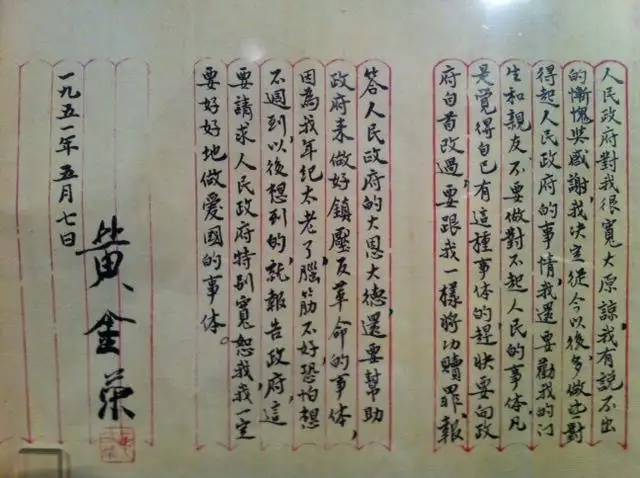 人民政府對我很寬大原諒，我有説不出
的慚愧與感謝，我決定從今以後多做些對
得起人民政府的事情，我還要勸我的門
生和親友不要做對不起人民的事体，凡
是覺得自己有這種事体的，趕快要向政
府自首改過，要跟我一樣將功贖罪，報
答人民政府的大恩大德，還要幫助
政府來做好鎮壓反革命的事体，
因為我年紀太老了，腦筋不好，恐怕想
不週到，以後想到的就報告政府，這
要請求人民政府特别寬恕我，我一定
要好好地做愛國的事体。
一九五一年五月七日
黃金榮